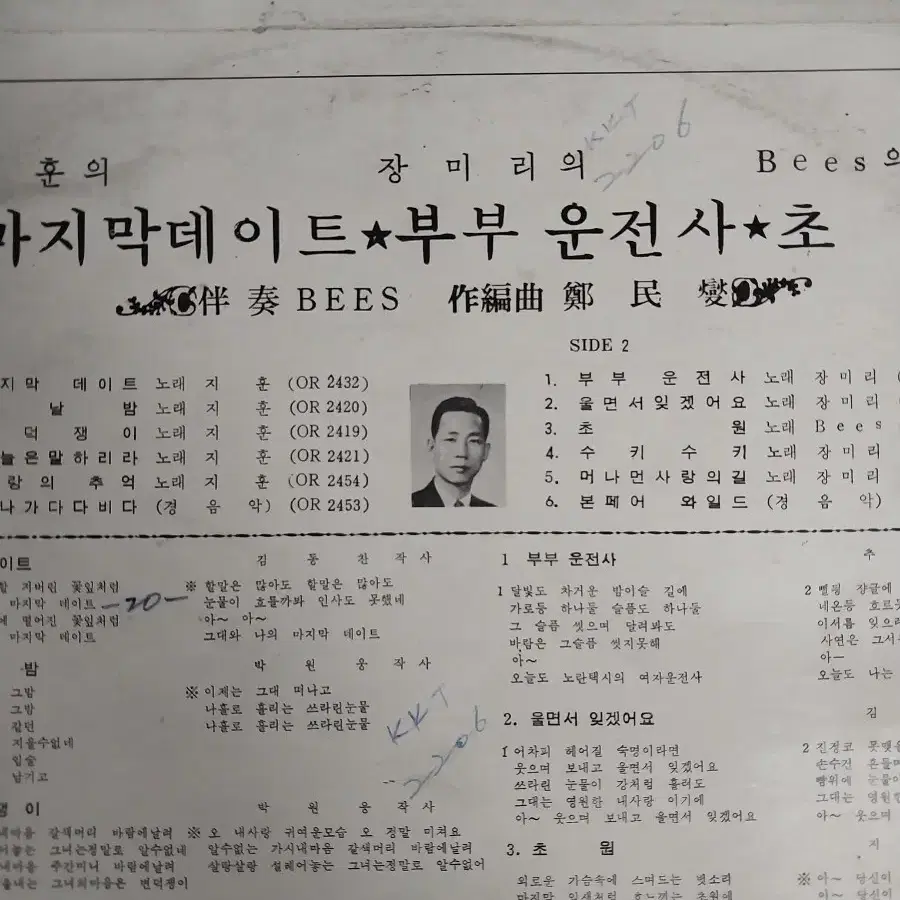 훈의 장미리의 Bees의
마지막데이트★부부 운전사★초
伴奏 BEES 作編曲 鄭民燮
KKT
2206
지막 데이트 노래 지 훈 (OR 2432)
날 밤 노래 지 훈 (OR 2420)
덕쟁이 노래 지 훈 (OR 2419)
늘은말하리라 노래 지 훈 (OR 2421)
랑의 추억 노래 지 훈 (OR 2454)
나가다다비다 (경음악) (OR 2453)
SIDE 2
1. 부부 운전사 노래 장미리 (
2. 울면서잊겠어요 노래 장미리
3. 초 원 노래 Bees
4. 수키수키 노래 장미리
5. 머나먼사랑의길 노래 장미리
6. 본페어 와일드 (경음악)
이트 김동찬작사
할 지버린 꽃잎처럼
마지막 데이트 -20-
에 떨어진 꽃잎처럼
마지막 데이트
※ 할말은 많아도 할말은 많아도
눈물이 흐를까봐 인사도 못했네
아~ 아~
그대와 나의 마지막 데이트
밤 박원웅작사
그밤
그밤
같던
지울수없네
입술
남기고
※ 이제는 그대 떠나고
나홀로 흘리는 쓰라린눈물
나홀로 흘리는 쓰라린눈물
KKT
2206
쟁이 박원웅작사
내마음 갈색머리 바람에날려
어놓는 그녀는정말로 알수없네
내마음 주간미니 바람에날려
울내는 그녀의마음은 변덕쟁이
※ 오 내사랑 귀여운모습 오 정말 미쳐요
알수없는 가시내마음 갈색머리 바람에날려
살랑살랑 설레어놓는 그녀는정말로 알수없어
1 부부 운전사 추
1 달빛도 차거운 밤이슬 길에
가로등 하나둘 슬픔도 하나둘
그 슬픔 씻으며 달려봐도
바람은 그슬픔 씻지못해
아~
오늘도 노란택시의 여자운전사
2 삘딩 쟝글에
네온등 흐르
이서름 잊으려
사연은 그서
아—
오늘도 나는
2. 울면서 잊겠어요 김
1 어차피 헤어질 숙명이라면
웃으며 보내고 울면서 잊겠어요
쓰라린 눈물이 강처럼 흘러도
그대는 영원한 내사랑 이기에
아~ 웃으며 보내고 울면서 잊겠어요
2 진정코 못맺을
손수건 흔들며
뺨위에 눈물이
그대는 영원한
아~ 웃으며
3. 초 원 지
외로운 가슴속에 스며드는 빗소리
마지막 잎새처럼 흐느끼는 초원에
※ 아~ 당신이
아~ 당신